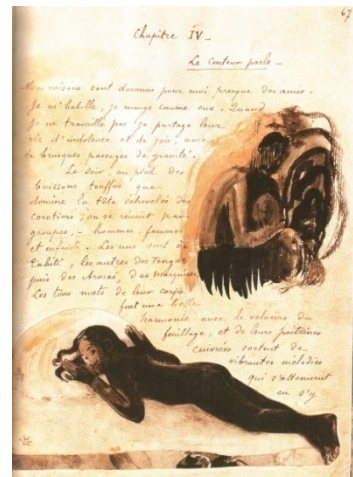 67
Chapitre IV_
Le Conteur parle_
Mes voisins sont devenus pour moi presque des amis.
Je m'habille, je mange comme eux. Quand
je ne travaille pas je partage leur
vie d'indolence et de joie, avec
de brusques passages de gravité.
Le soir, au pied des
buissons touffus que
domine la tête échevelée des
cocotiers, on se réunit par
groupes, - hommes, femmes
et enfants. Les uns sont de
Tahiti, les autres des Tongas,
puis des Arorai, des Marquises.
Les tons mats de leur corps
font une belle
harmonie avec le velours du
feuillage, et de leurs poitrines
cuivrées sortent de
vibrantes mélodies
qui s'atténuent
en s'y